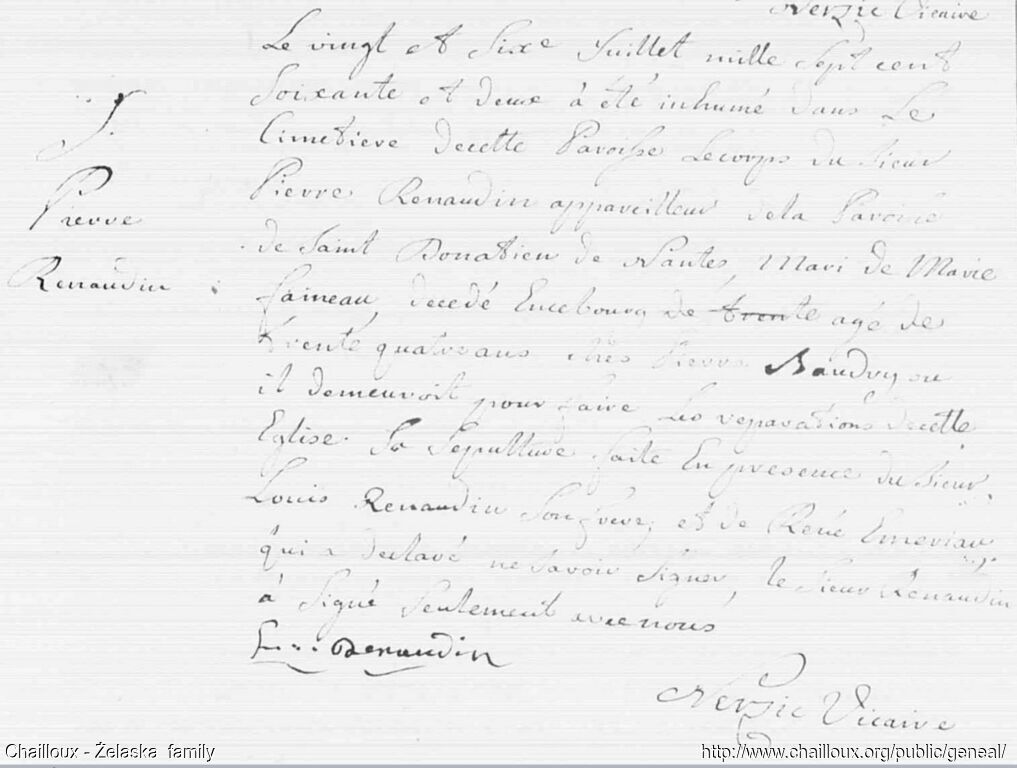 Nerzic Vicaire
Le vingt et Sixe Juillet mille Sept cent
Soixante et deux à été inhumé dans Le
Cimetiere decette Paroisse Lecorps du Sieur
Pierre Renaudin appareilleur dela Paroisse
de Saint Donatien de Nantes, Mari de Marie
faineau, decedé Encebourg de trente agé de
trente quatre ans chès Pierre Baudry ou
il demeuroit pour faire Les reparations decette
Eglise. Sa Sepulture faite En presence du Sieur
Louis Renaudin Son frere, et de René Emeriau
qui a declaré ne Savoir Signer, le Sieur Renaudin
à Signé Seulement avec nous
L... Renaudin
Nerzic Vicaire
S.
Pierre
Renaudin
Chailloux - Żelaska family
http://www.chailloux.org/public/geneal/